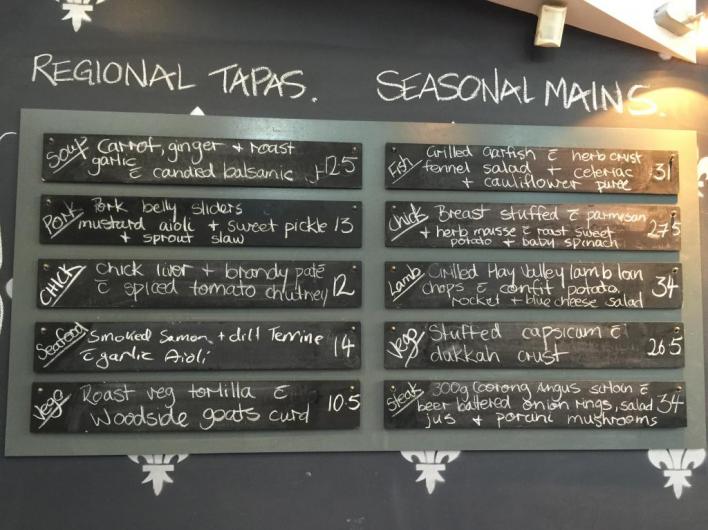 REGIONAL TAPAS.
Soup
Carrot, ginger + roast
garlic
c̄ candied balsamic 12.5
Pork
Pork belly sliders
mustard aioli + sweet pickle 13
+ sprout slaw
CHICK
Chick liver + brandy paté
c̄ spiced tomato chutney 12
Seafood
Smoked Samon + dill Terrine 14
c̄ garlic Aioli
Vego
Roast veg tortilla c̄
Woodside goats curd 10.5
SEASONAL MAINS.
Fish
Grilled Garfish c̄ herb crust
fennel salad + celeriac 31
+ cauliflower puree
Chick
Breast stuffed c̄ parmisan
+ herb mousse c̄ roast sweet 27.5
potato + baby spinach
Lamb
Grilled Hay Valley lamb loin
chops c̄ confit potato, 34
rocket + blue cheese salad
Vego
Stuffed capsicum c̄
dukkah crust 26.5
Steak
300g Coorong Angus sirloin c̄
beer battered onion rings, salad 34
jus + porcini mushrooms